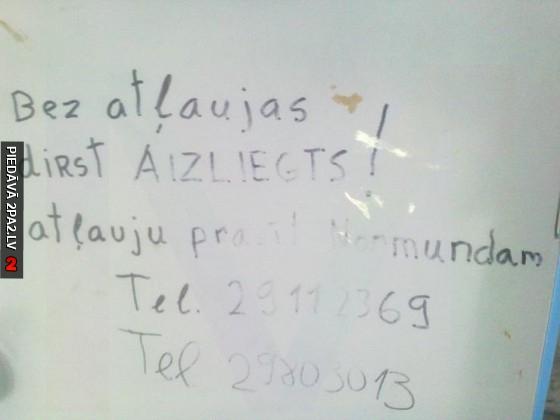 Bez atļaujas
dirst AIZLIEGTS!
atļauju prasīt Normundam
Tel. 29112369
Tel 29803013
PIEDĀVĀ 2PA2.LV
2